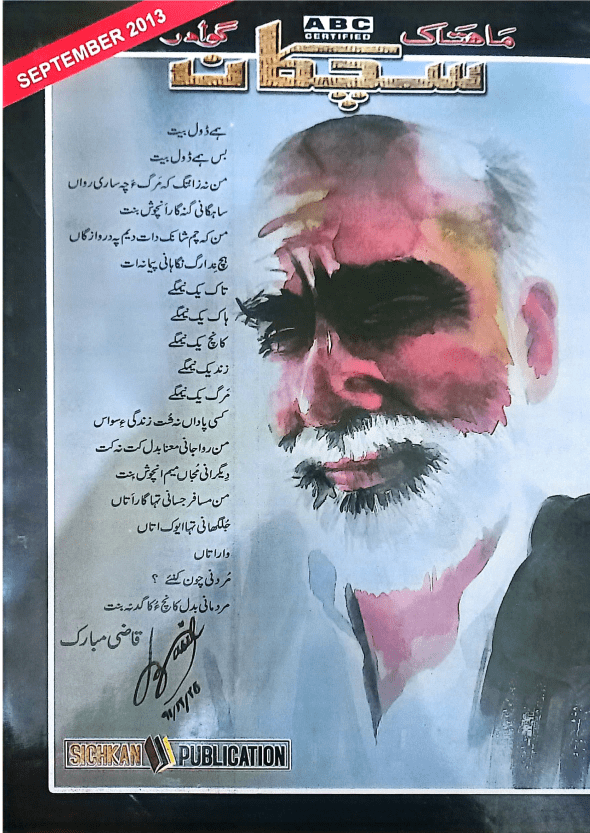 SEPTEMBER 2013
ماھتاک
ABC
CERTIFIED
گوادر
سچکان
ہے ڈول بیت
بس ہے ڈول بیت
من نہ زانتگ کہ مَرگ ءَ چہ ساری رواں
ساہگانی گنہگار اَنچوش بنت
من کہ چم شانک دات دیم پہ دروازگاں
ہچ بِدارگ نگاہانی پیانہ ات
تاک یک نیمگے
ہاک یک نیمگے
کانچ یک نیمگے
زند یک نیمگے
مَرگ یک نیمگے
کسی پاداں نہ فُت زندگی ءِ سواس
من رواجانی معنا بدل کت نہ کت
دِیگرانی مُچاں میم انچوش بنت
من مسافر جسانی تہا گار اَتاں
جُلکھانی تہا ایوک اتاں
وار اتاں
مُردنی چون کنئے ؟
مردمانی بدل کانچ ءُ کاگد نہ بنت
قاضی مبارک
SICHKAN PUBLICATION